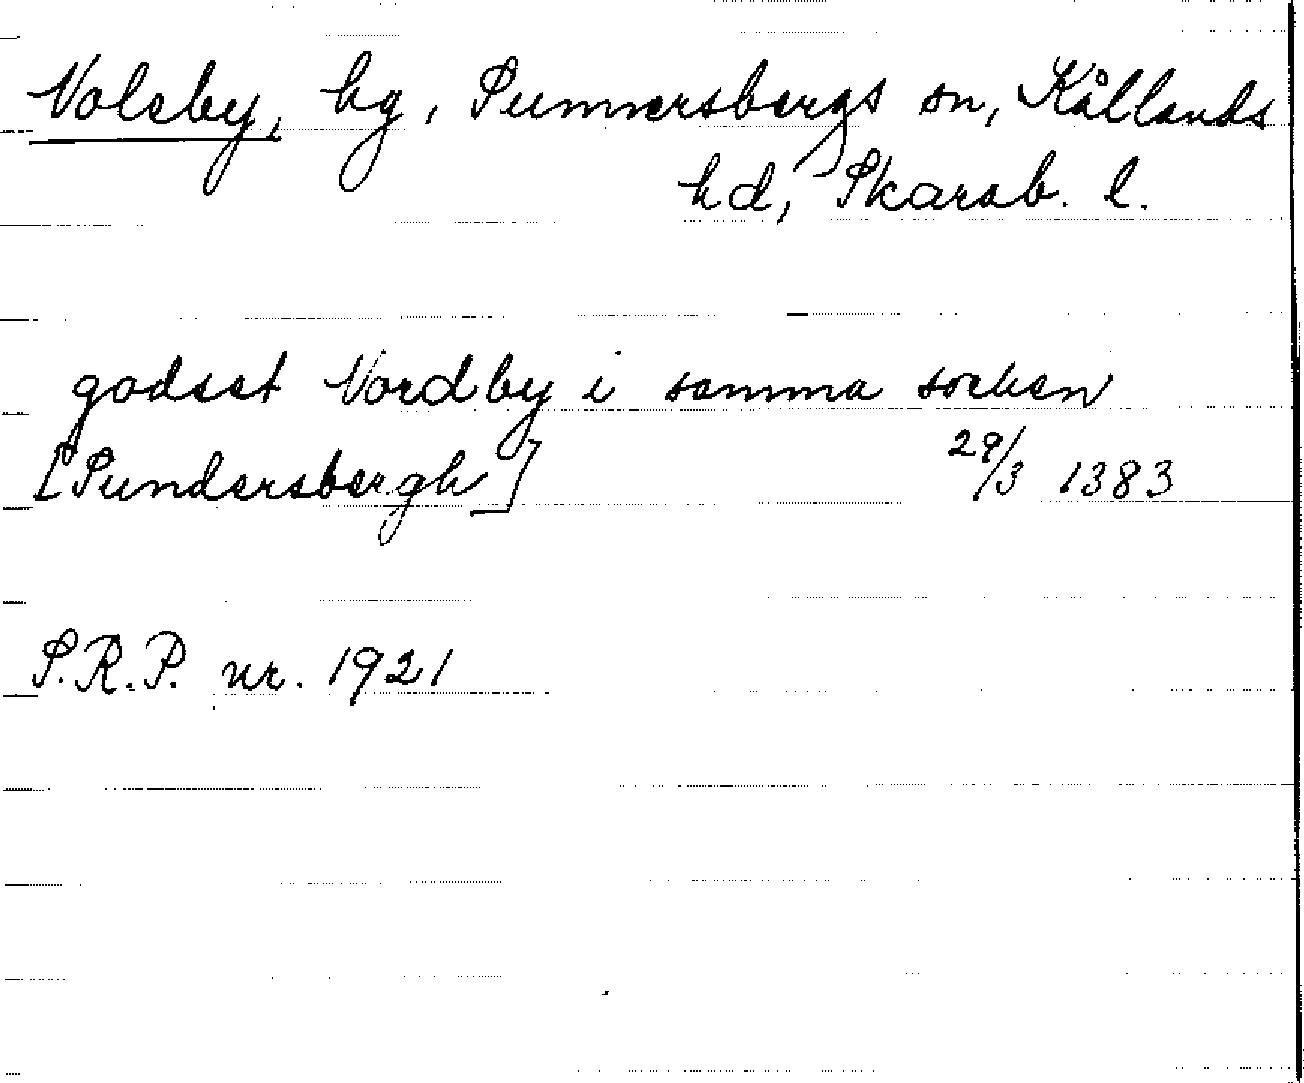 Noleby, hg, Sunnersbergs sn, Kållands
hd, Skarab. l.
godset Nordby i samma socken
[Sundersbergh] 29/3 1383
S.R.P. nr. 1921